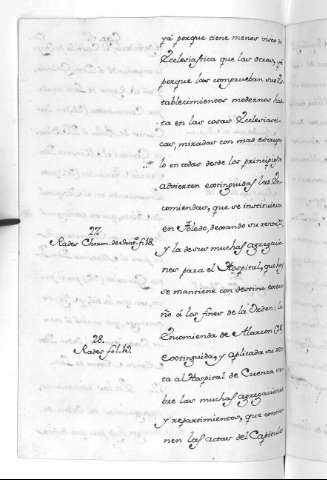 yá porque tiene menos vivos
Ecclesiastica que las otras, yá
porque los comprueban sus Es-
tablecimientos modernos has-
ta en las cosas Ecclesiasti-
cas, miradas con mas escrupu-
lo en todas desde los principios
advierten extinguidas las En-
comiendas, que se instituieron
en Toledo, dexando su renta,
y la de sus muchas agregacio-
nes para el Hospital, que
se mantiene con destino extra-
ño á los fines de la Orden: la
Encomienda de Alarcon
extinguida, y aplicada su ren-
ta al Hospital de Cuenca
bre las muchas agregaciones
y repartimientos, que contie-
nen las actas del Capitulo
27.
Rades Chron. de fol.
28.
Rades fol.